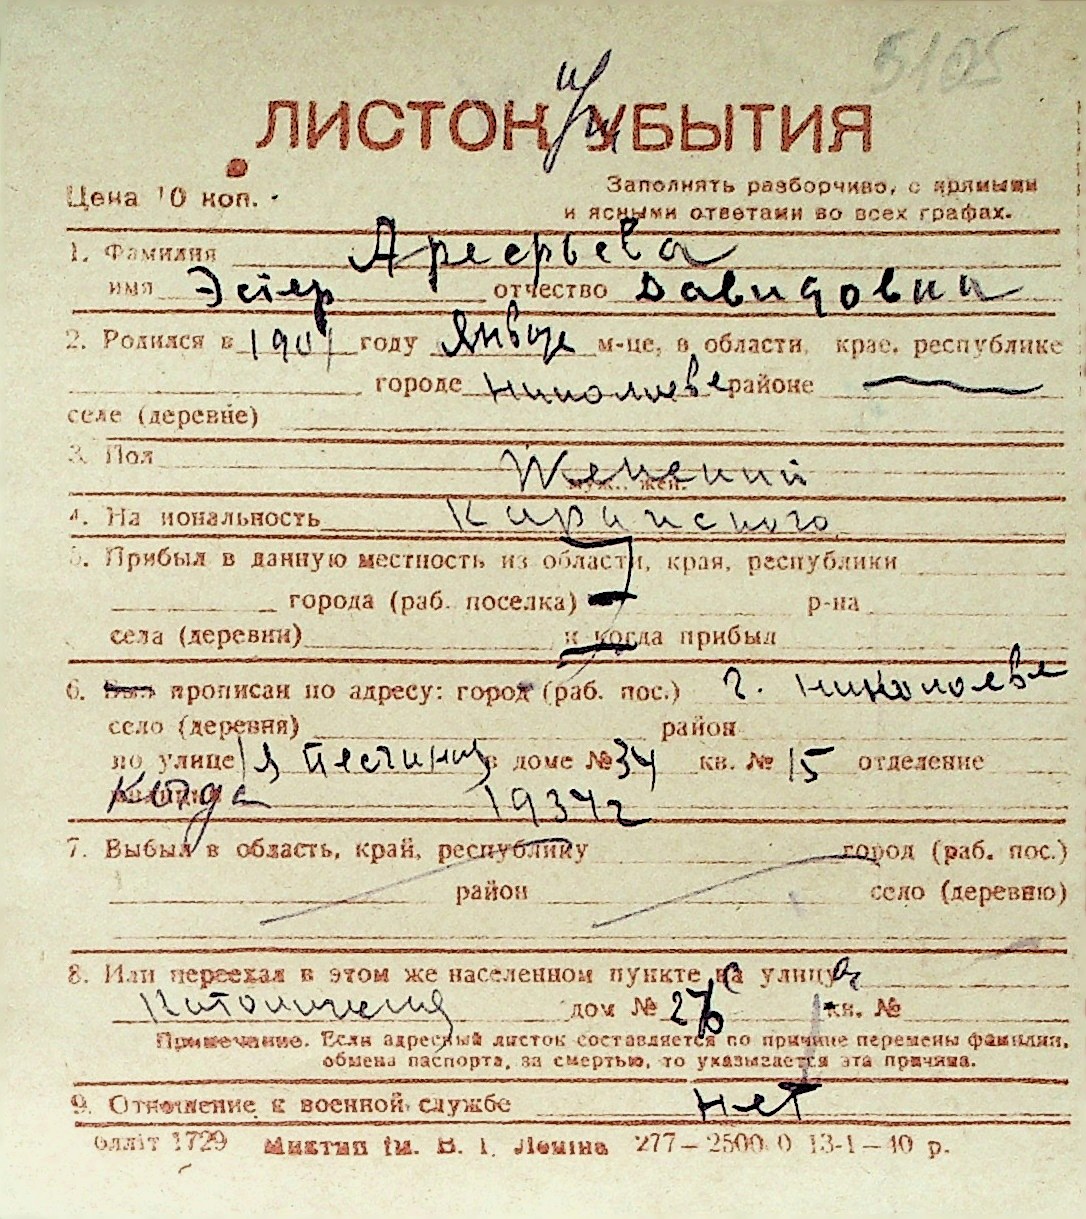 5105
ЛИСТОК УБЫТИЯ
Цена 10 коп.
Заполнять разборчиво, с прямыми
и ясными ответами во всех графах.
1. Фамилия Арефьева
имя Эстер отчество Давидовна
2. Родился в 1901 году Январе м-це, в области, крае, республике
городе Николаеве районе
селе (деревне)
3. Пол Женский
муж., жен.
4. Национальность Караимского
5. Прибыл в данную местность из области, края, республики
города (раб. поселка) р-на
села (деревни) и когда прибыл
6. Был прописан по адресу: город (раб. пос.) г. Николаеве
село (деревня) район
по улице 1я Песчаная в доме № 34 кв. № 15 отделение
Когда 1934г
7. Выбыл в область, край, республику город (раб. пос.)
район село (деревню)
8. Или переехал в этом же населенном пункте на улицу
Католическая дом № 276 кв. №
Примечание. Если адресный листок составляется по причине перемены фамилии,
обмена паспорта, за смертью, то указывается эта причина.
9. Отношение к военной службе нет
облліт 1729 Миктип ім. В. І. Леніна 277—2500.0 13-1—40 р.